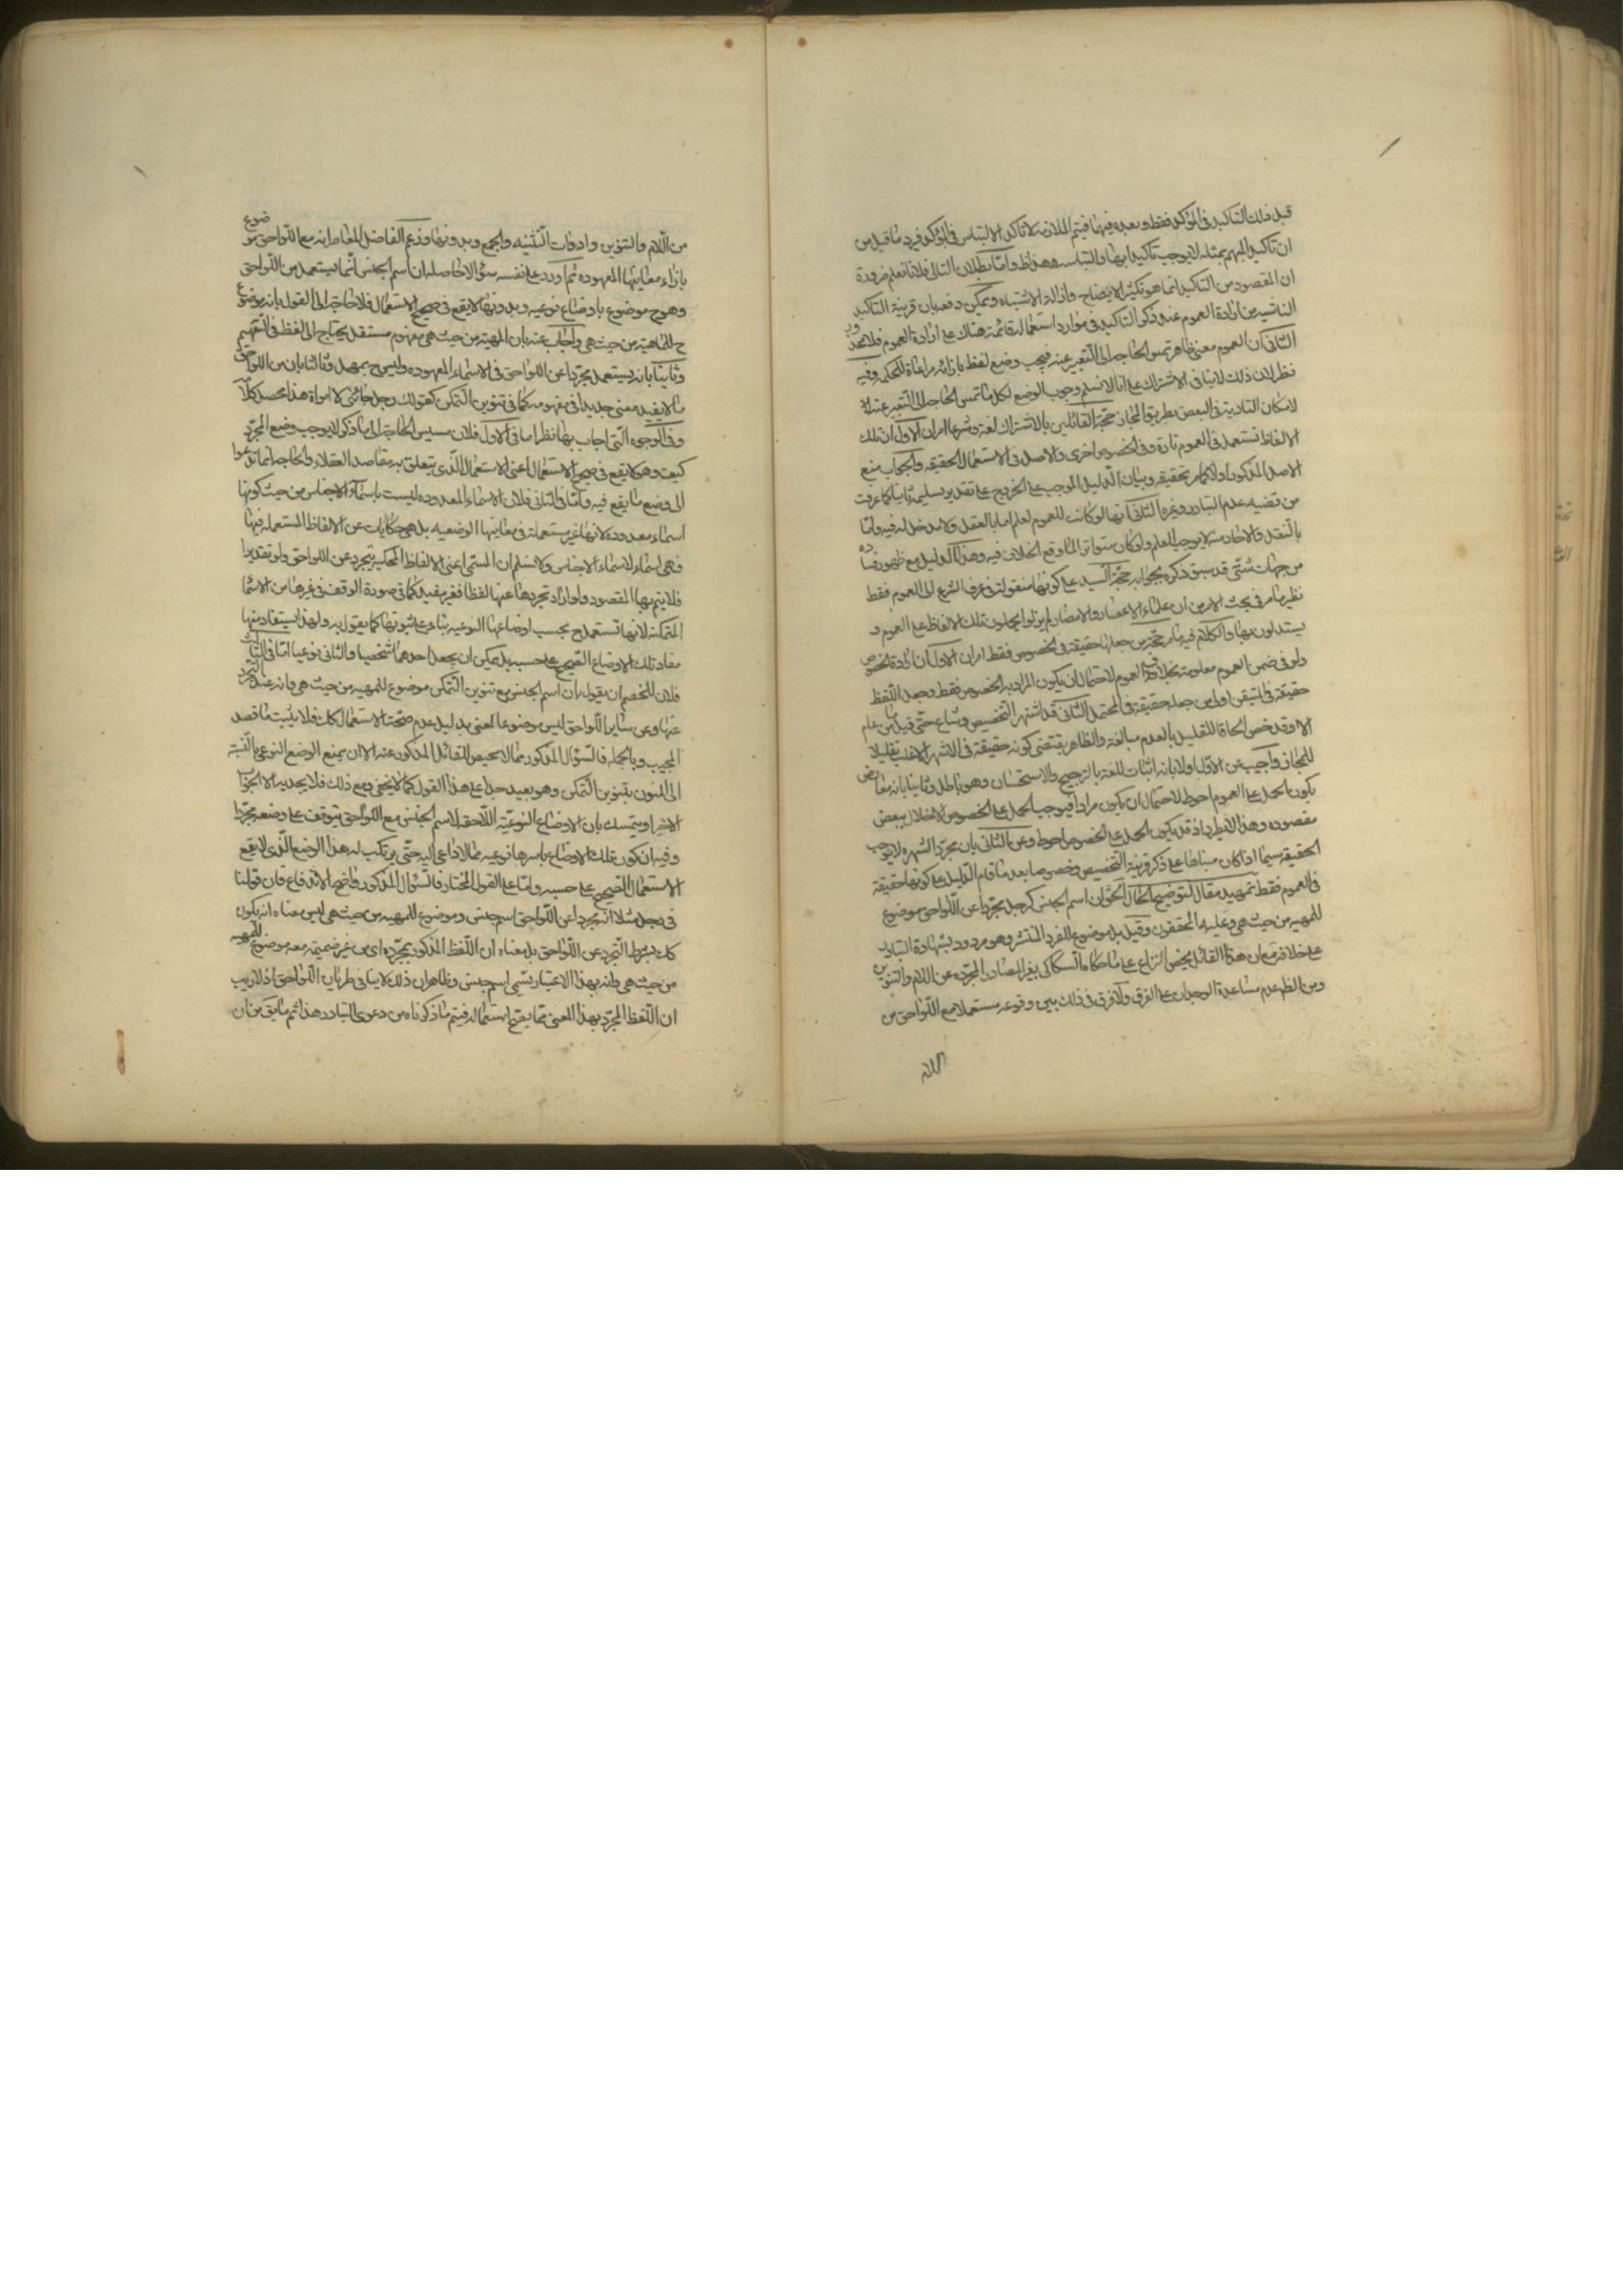 قبل ذلك التاكيد في المؤكد فقط وبعده فيهما فيتم الملازمة لا تاكد الالتباس في المؤكد فيرد ما قيل من
ان تاكيد المبهم بمثله لا يوجب تاكيد ابهامه والتباسه وهذا ظ واما بطلان التالى فلانا نعلم ضرورة
ان المقصود من التاكيد انما هو تكثير الايضاح وازالة الاشتباه ويمكن دفعه بان قرينة التاكيد
الناشيه من ارادة العموم عند ذكر التاكيد في موارد استعماله قائمة هناك على ارادة العموم فلا محذور
الثانى ان العموم معنى ظاهر تمس الحاجه الى التعبير عنه فيجب وضع لفظ بازائه مراعاة للحكمه وفيه
نظر لان ذلك لا ينافى الاشتراك على انا لا نسلم وجوب الوضع لكل ما تمس الحاجه الى التعبير عنه الا
لامكان التادية في البعض بطريق المجاز حجة القائلين بالاشتراك لغة وشرعا امران الاول ان تلك
الالفاظ تستعمل في العموم تارة وفى الخصوص اخرى والاصل في الاستعمال الحقيقه والجواب منع
الاصل المذكور اولا كما مر تحقيقه وبيان الدليل الموجب على الخروج على تقدير تسليمه ثانيا كما عرفت
من قضيه عدم التبادر وغيره الثانى انها لو كانت للعموم لعلم اما بالعقل ولا مدخل له فيه واما
بالنقل والاحاد منه لا يوجب العلم ولو كان متواترا لما وقع الخلاف فيه وهذا الدليل مع ظهور فساده
من جهات شتى قد سبق ذكره بجوابه حجة السيد على كونها منقولة في عرف الشرع الى العموم فقط
نظير ما مر في بحث الامر من ان علماء الاعصار والامصار لم يزالوا يحملون تلك الالفاظ على العموم و
يستدلون بها والكلام فيه ما مر حجة من جعلها حقيقة في الخصوص فقط امران الاول ان ارادة الخصوص
ولو في ضمن العموم معلومة بخلاف العموم لاحتمال ان يكون المراد به الخصوص فقط وجعل اللفظ
حقيقة في المتيقن اولى من جعله حقيقة في المحتمل الثانى قد اشتهر التخصيص وشاع حتى قيل ما من عام
الا وقد خص الحاقا للقليل بالعدم مبالغة والظاهر يقتضى كونه حقيقة في الاشهر الاغلب تقليلا
للمجاز واجيب عن الاول اولا بانه اثبات للغة بالترجيح والاستحسان وهو باطل وثانيا بانه معارض
بكون الحمل على العموم احوط لاحتمال ان يكون مرادا فيوجب الحمل على الخصوص الاخلال ببعض
مقصوده وهذا لا يطرد اذ قد يكون الحمل على الخصوص احوط وعن الثانى بان مجرد الشهره لا يوجب
الحقيقة سيما اذا كان مبناها على ذكر قرينة التخصيص وخصوصا بعد ما قام الدليل على كونها حقيقة
في العموم فقط تمهيد مقال لتوضيح الحال الحق ان اسم الجنس كرجل مجردا عن اللواحق موضوع
للمهيه من حيث هى وعليه المحققون وقيل بل موضوع للفرد المنتشر وهو مردود بشهادة التبادر
على خلافه مع ان هذا القائل يخص النزاع على ما حكاه السكاكى بغير المصادر المجرده عن اللام والتنوين
ومن الظ عدم مساعدة الوجدان على الفرق ولا فرق في ذلك بين وقوعه مستعملا مع اللواحق من
اللام
من اللام والتنوين وادوات التثنيه والجمع وبدونها وزعم الفاضل المعاصر انه مع اللواحق موضوع
بازاء معانيها المعهوده ثم اورد على نفسه سؤالا حاصله ان اسم الجنس انما يستعمل مع اللواحق
وهو ح موضوع باوضاع نوعيه وبدونها لا يقع في صحيح الاستعمال فلا حاجة الى القول بانه موضوع
ح للماهية من حيث هى واجاب عنه بان المهية من حيث هى مفهوم مستقل يحتاج الى لفظ في التفهيم
وثانيا بانه يستعمل مجردا عن اللواحق في الاسماء المعدوده وليس ح بمهمل وثالثا بان من اللواحق
ما لا يفيد معنى جديدا في مفهومه كما في تنوين التمكن كقولك رجل جائنى لا امراة هذا محصل كلامه
وفى الوجوه التى اجاب بها نظر اما في الاول فلان مسيس الحاجة الى ما ذكر لا يوجب وضع المجرد
كيف وهو لا يقع في صحيح الاستعمال اعنى الاستعمال الذى يتعلق به مقاصد العقلاء والحاجه انما تدعوا
الى وضع ما يقع فيه واما في الثانى فلان الاسماء المعدوده ليست باسماء الاجناس من حيث كونها
اسماء معدوده لانها غير مستعملة في معانيها الوضعيه بل هى حكايات عن الالفاظ المستعمله فيها
فهى اسماء لاسماء الاجناس ولا نسلم ان المسمى اعنى الالفاظ المحكيه تتجرد عن اللواحق ولو تقديرا
فلا يتم بها المقصود ولو اراد تجردها عنها لفظا فغير مفيد كما في صورة الوقف في غيرها من الاسماء
المتمكنه لانها تستعمل ح بحسب اوضاعها النوعيه بناء على ثبوتها كما يقول به ولهذا يستفاد منها
مفاد تلك الاوضاع الصحيح على حسبه بل يمكن ان يجعل احدهما شخصيا والثانى نوعيا اما في الثالث
فلان للخصم ان يقول بان اسم الجنس مع تنوين التمكن موضوع للمهيه من حيث هى وانه عند التجرد
عنها وعن سائر اللواحق ليس موضوعا لمعنى بدليل عدم صحة الاستعمال كك فلا يثبت ما قصد
المجيب وبالجمله فالسؤال المذكور مما لا محيص للقائل المذكور عنه الا ان يمنع الوضع النوعى بالنسبة
الى المنون بتنوين التمكن وهو بعيد جدا على هذا القول كما لا يخفى ومع ذلك فلا يجديه الا الجواب
الاخير او يتمسك بان الاوضاع النوعيه اللاحقه لاسم الجنس مع اللواحق يتوقف على وضعه مجردا
وفيه ان كون تلك الاوضاع باسرها نوعيه مما لا داعى اليه حتى يرتكب له هذا الوضع الذى لا يقع
الاستعمال الصحيح على حسبه واما على القول المختار فالسؤال المذكور واضح الاندفاع فان قولنا
في رجل مثلا انه مجردا عن اللواحق اسم جنس وموضوع للمهيه من حيث هى ليس معناه انه يكون
كك بشرط التجرد عن اللواحق بل معناه ان اللفظ المذكور بمجرده اى من غير ضميمة معه موضوع للمهيه
من حيث هى وانه بهذا الاعتبار يسمى اسم جنس وظاهر ان ذلك لا ينافى طريان اللواحق اذ لا ريب
ان اللفظ المجرد بهذا المعنى مما يصح استعماله فيتم ما ذكرناه من دعوى التبادر هذا ثم ما يق من ان